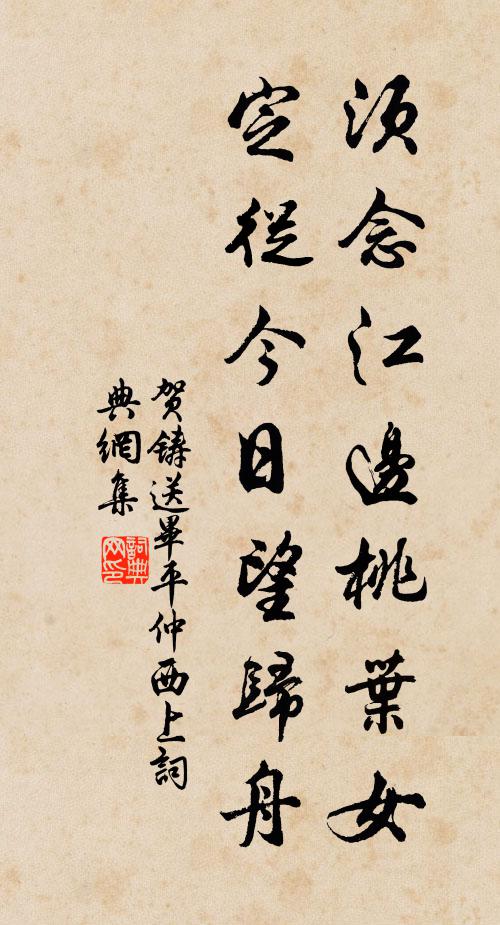 須念江邊桃葉女
定從今日望歸舟
賀鑄送畢平仲西上詞
典網集
詞典
网印